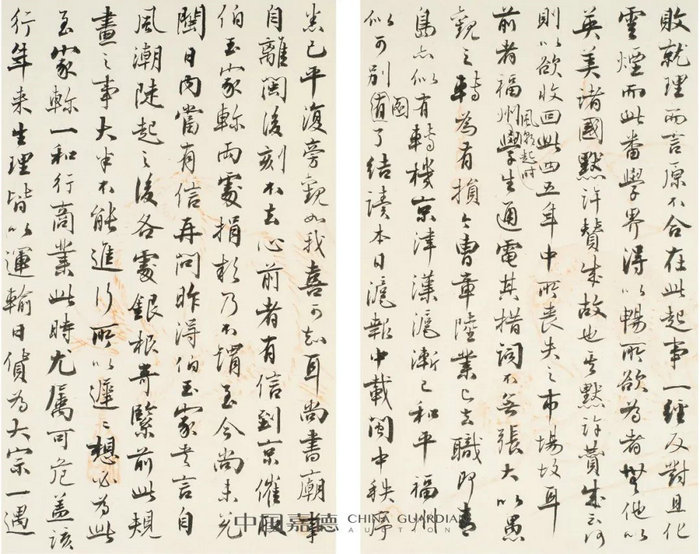 敗就理而言原不合在此起事一經反對且化
雲煙而此番學界得以暢所欲為者無他以
英美諸國默許贊成故也其默許贊成云何
則以欲收回此四五年中所喪失之市場故耳
前者福州學生風潮起時通電其措詞不無張大以愚
觀之轉為有損今曹章陸業已去職即青
島亦似有轉機京津漢滬漸已和平福州
似可別有國了結讀本日滬報中載閩中秩序
業已平復旁觀如我喜可知耳尚書廟事
自離閩後刻不去心前者有信到京催促
伯玉家軫兩處捐款乃不謂至今尚未兌
閩日內當有信再問昨得伯玉家書言自
風潮陡起之後各處銀根奇緊前此規
畫之事大半不能進行所以遲遲想必為此
至家軫一和行商業此時尤屬可危蓋該
行年來生理皆以運輸日貨為大宗一遇
中國嘉德 CHINA GUARDIAN
AUCTION